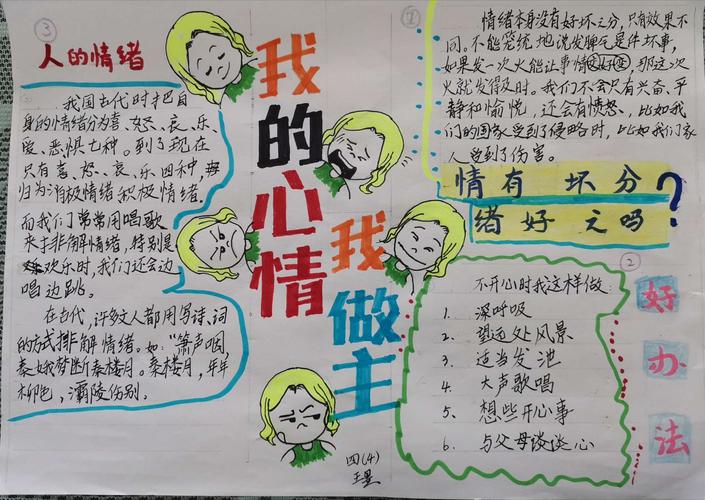 ③
人的情绪
我国古代时把自
身的情绪分为喜、怒、哀、乐、
爱、恶惧七种。到了现在
只有喜、怒、哀、乐四种,
归为消极情绪积极情绪.
而我们常常用唱歌
来排解情绪,特别是
欢乐时,我们还会边
唱边跳。
在古代,许多文人都用写诗、词
的方式排解情绪。如:“箫声咽,
秦娥梦断秦楼月。秦楼月,年年
柳色,灞陵伤别。
我的心情
我做主
四(4)
①
情绪本身没有好坏之分,只有效果不
同。不能笼统地说发脾气是件坏事,
如果发一次火能让事情变好,那这次
火就发得及时。我们不会只有兴奋、平
静和愉悦,还会有愤怒、比如我
们的国家受到了侵略时,比如我们家
人受到了伤害。
情有坏分
绪好之吗?
②
好办法
不开心时我这样做:
1. 深呼吸
2. 望远处风景
3. 适当发泄
4. 大声歌唱
5. 想些开心事
6. 与父母谈谈心